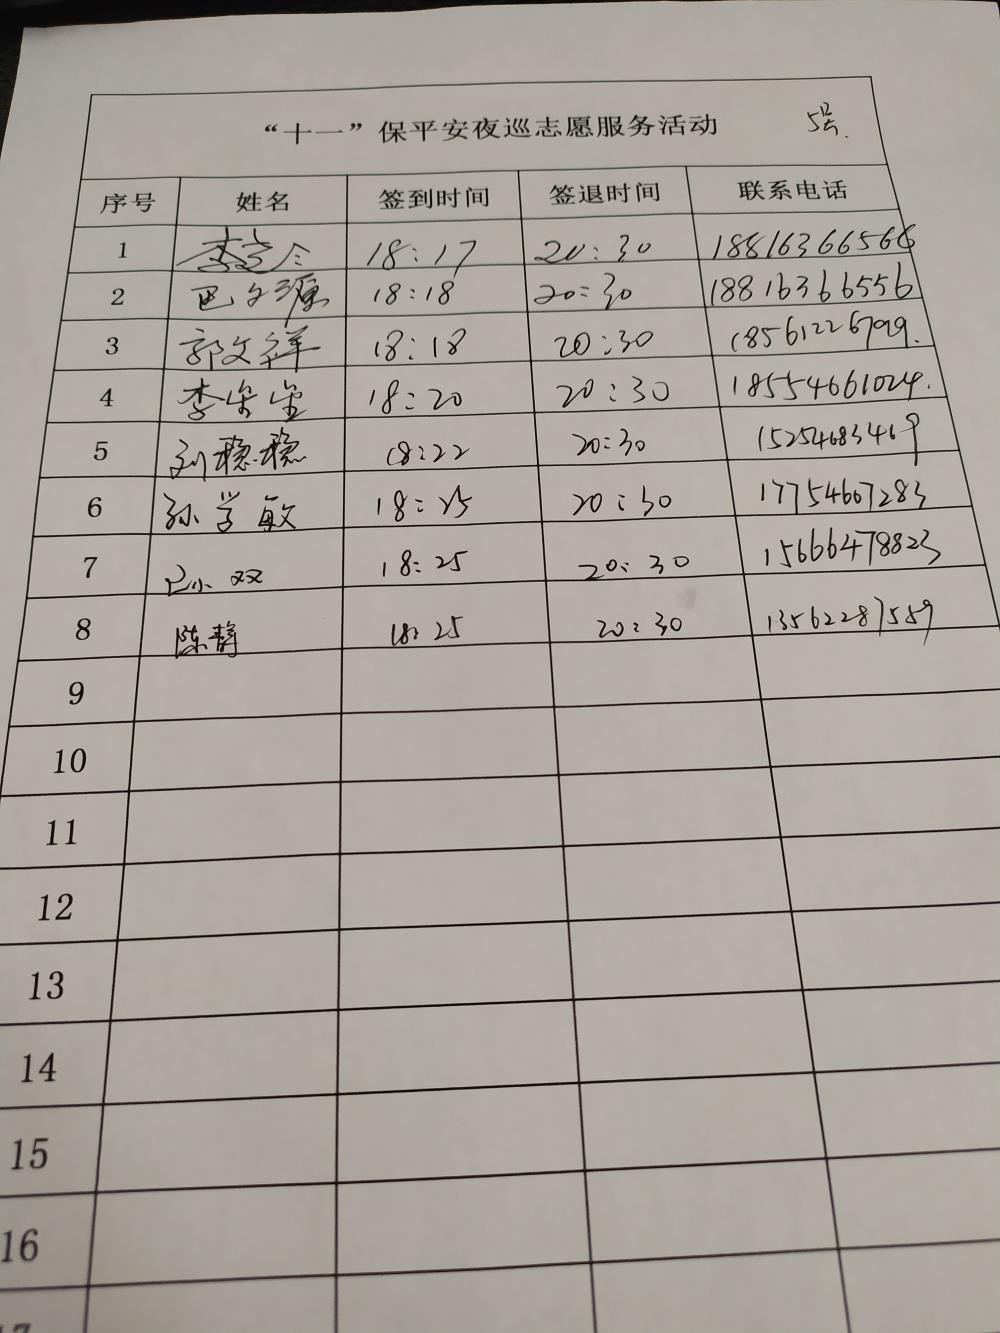 “十一”保平安夜巡志愿服务活动 5号.
序号 姓名 签到时间 签退时间 联系电话
1 18:17 20:30 18816366566
2 18:18 20:30 18816366556
3 郭文祥 18:18 20:30 18561226799.
4 18:20 20:30 18554661024.
5 刘稳稳 18:22 20:30 15254683469
6 孙学敏 18:25 20:30 17754607283
7 巴小双 18:25 20:30 15666478823
8 陈静 18:25 20:30 13562287589
9
10
11
12
13
14
15
16
17